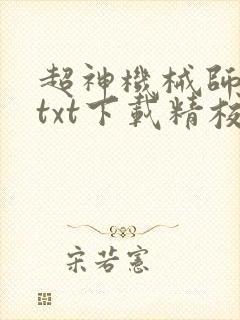 超神機械師
txt下載精校
宋若憲